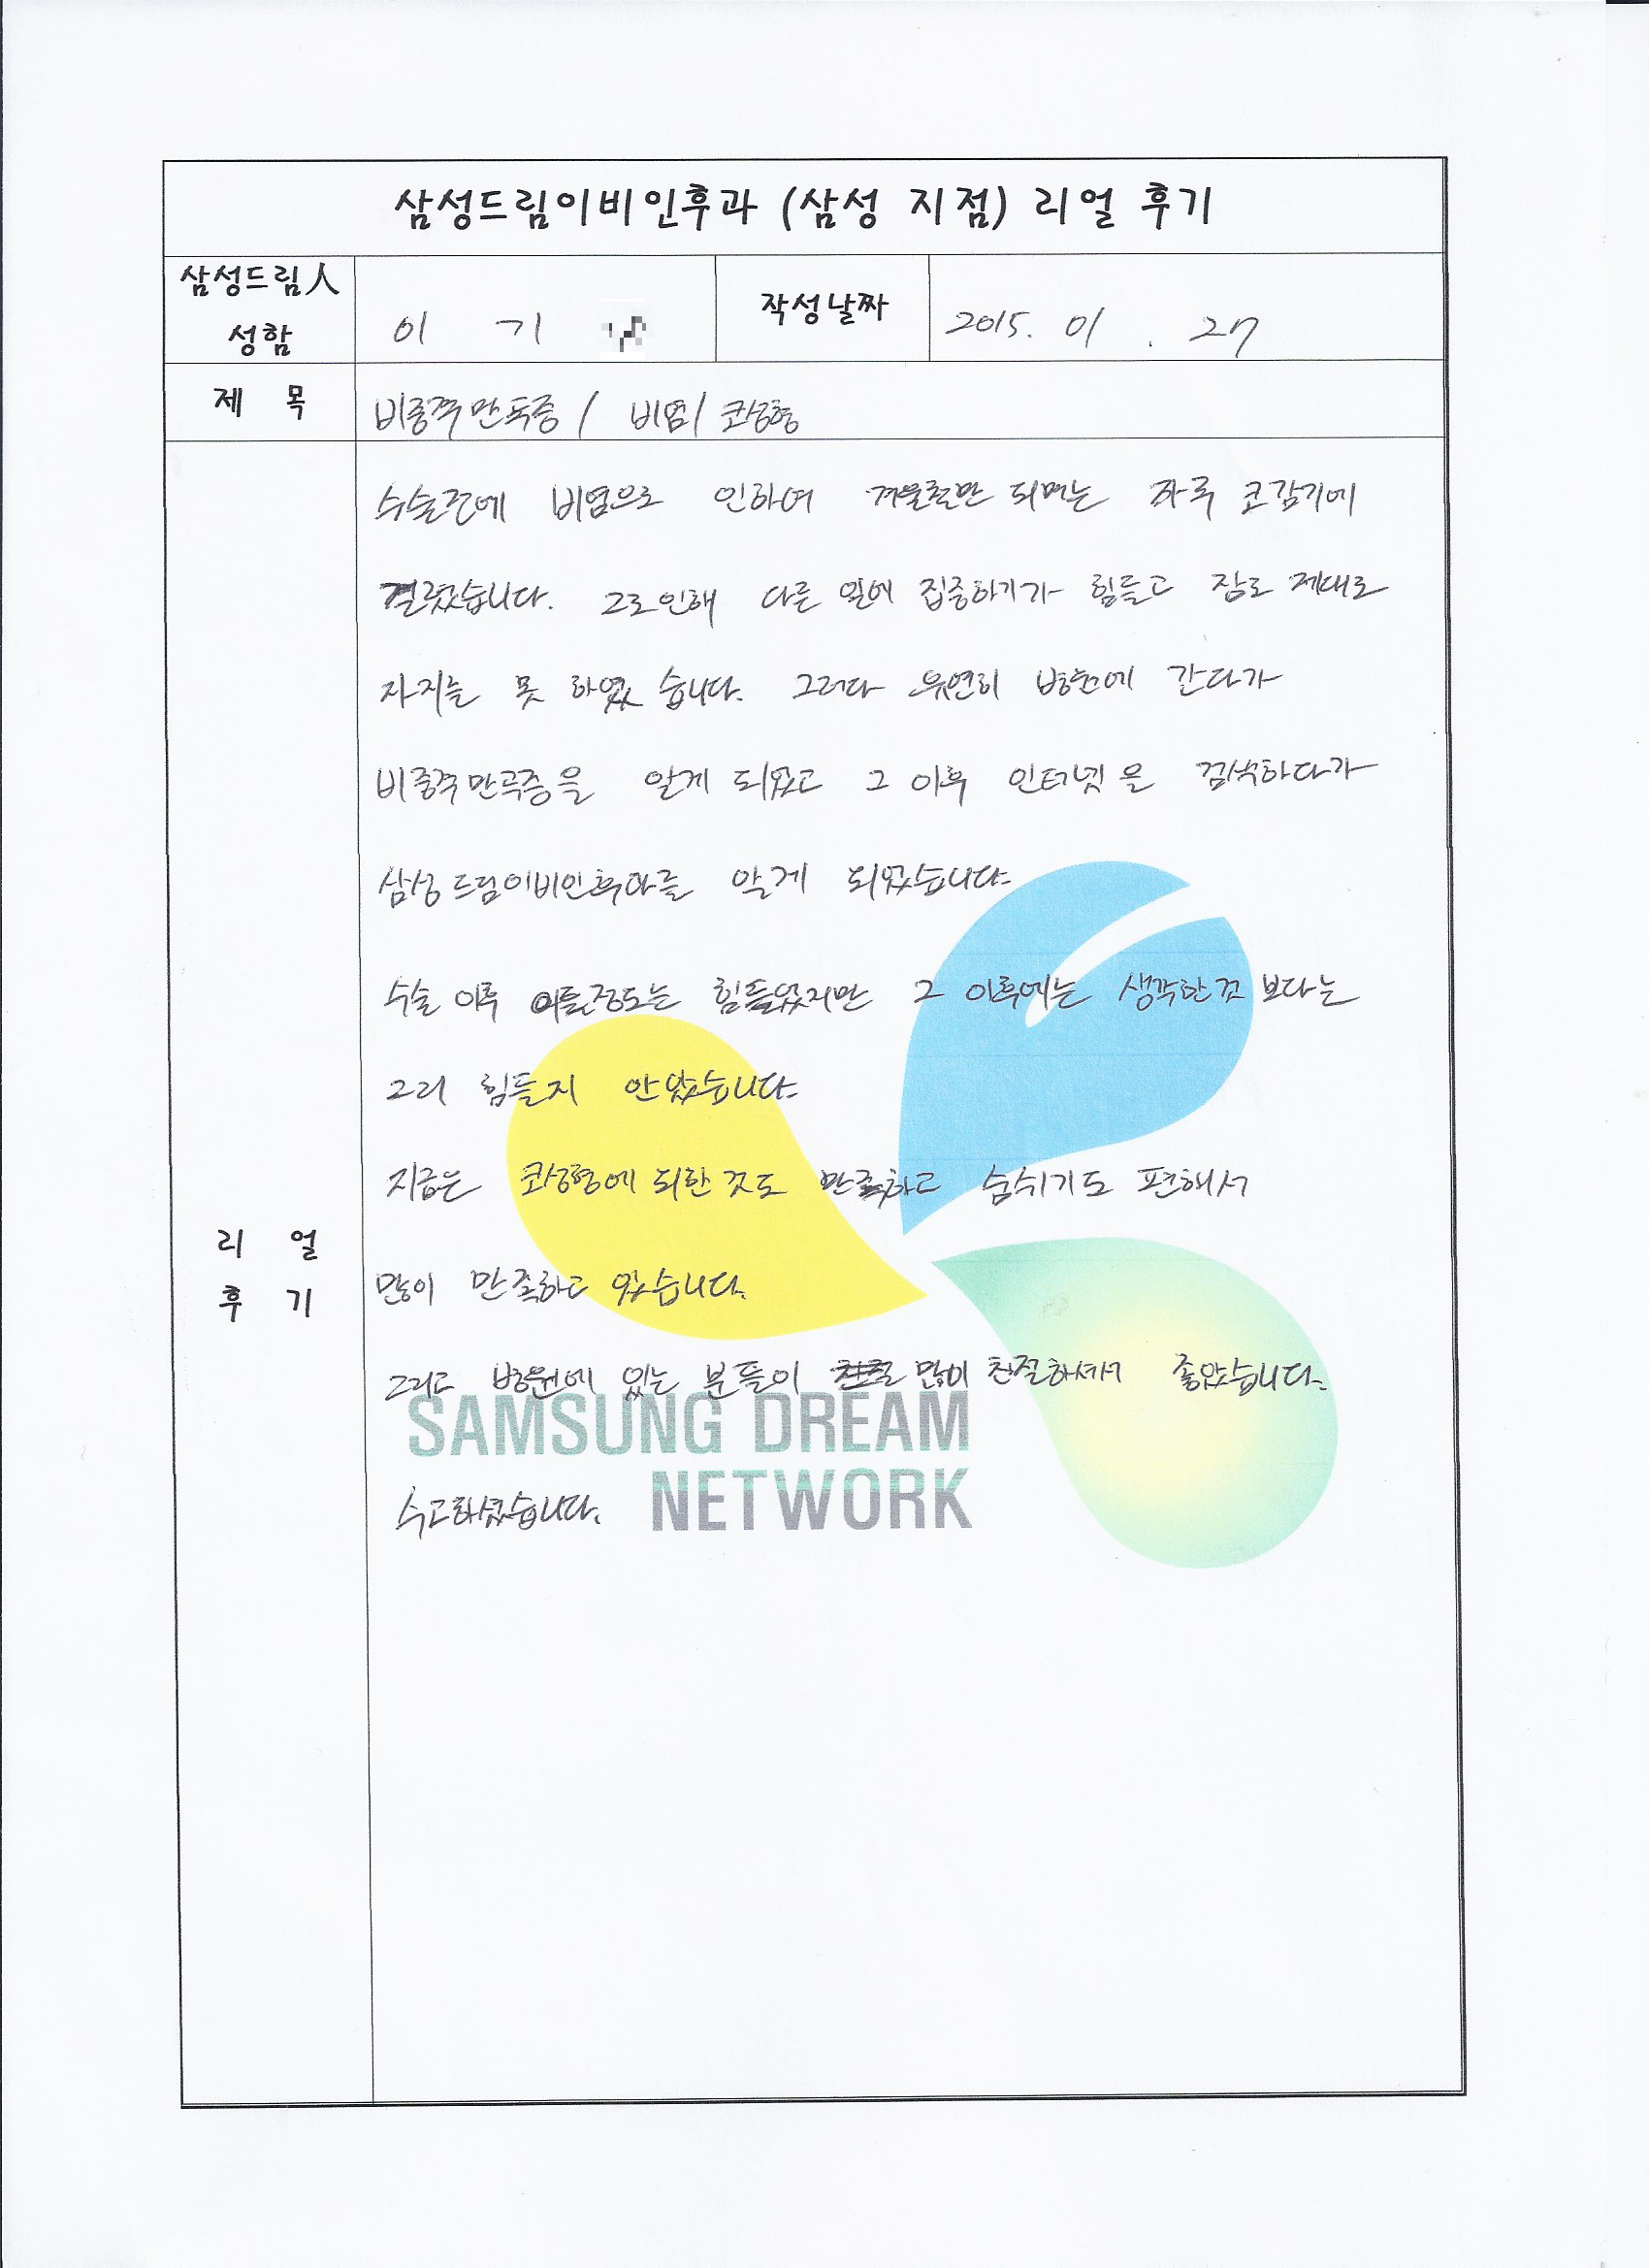 삼성드림이비인후과 (삼성 지점) 리얼 후기
삼성드림人 성함 이 기 작성날짜 2015. 01. 27
제 목 비중격만곡증 / 비염 / 코성형
리 얼 후 기
수술전에 비염으로 인하여 겨울철만 되면는 자주 코감기에
걸렸습니다. 그로인해 다른 일에 집중하기가 힘들고 잠도 제대로
자지를 못 하였습니다. 그러다 우연히 병원에 간다가
비중격만곡증을 알게 되었고 그 이후 인터넷을 검색하다가
삼성드림이비인후과를 알게 되었습니다.
수술 이후 이틀정도는 힘들었지만 그 이후에는 생각한것 보다는
그리 힘들지 안았습니다.
지금은 코성형에 되한 것도 만족하고 숨쉬기도 편해서
많이 만족하고 있습니다.
그리고 병원에 있는 분들이 많이 친절하셔서 좋았습니다.
수고하셨습니다.
SAMSUNG DREAM
NETWORK